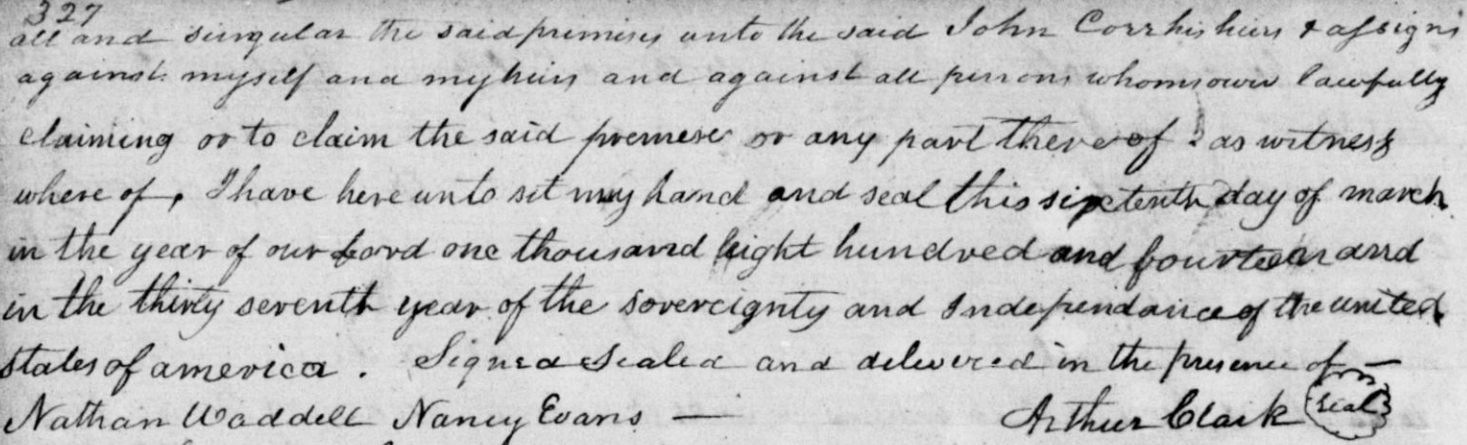 327
all and singular the said premises unto the said John Corr his heirs & assigns
against myself and my heirs and against all persons whomsower lawfully
claiming or to claim the said premeses or any part there of as witness
where of, I have here unto set my hand and seal this sixteenth day of march
in the year of our Lord one thousand eight hundred and fourteen and
in the thirty seventh year of the sovereignty and Independance of the united
states of america. Signed Sealed and delivered in the presence of —
Nathan Waddell Nancy Evans — Arthur Clark Seal